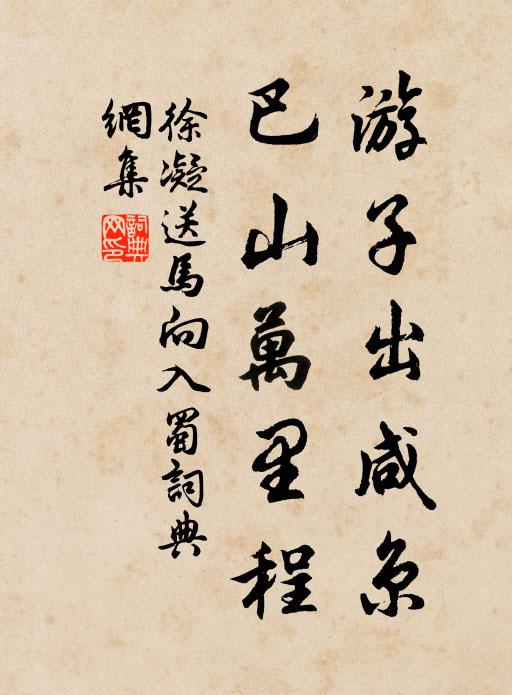 游子出咸京
巴山萬里程
徐凝送馬向入蜀詞典
網集
詞典
网印